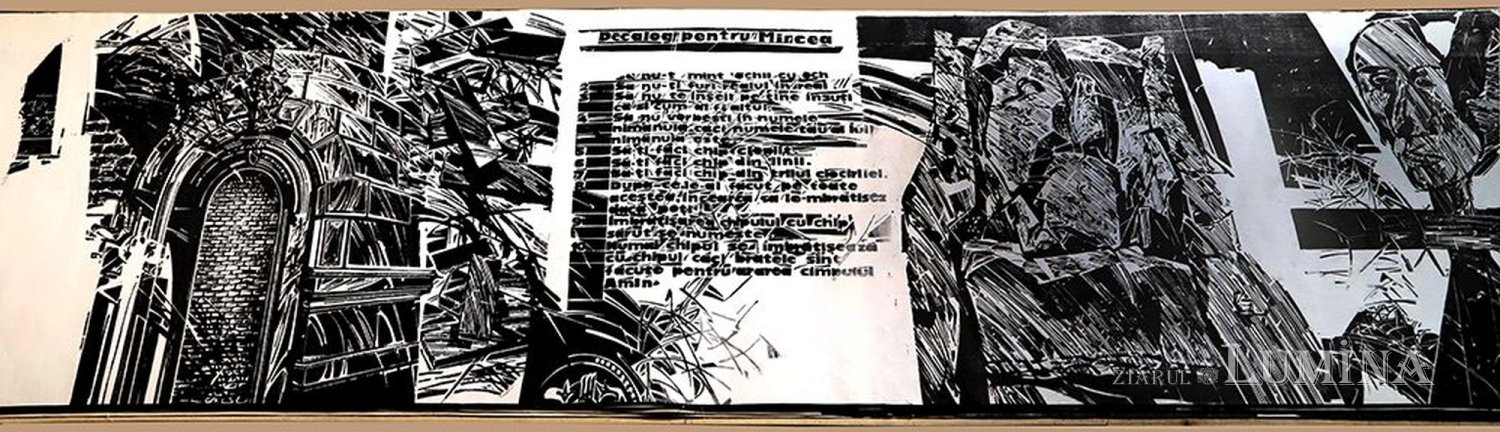 Decalog pentru Mircea
nu-ţi minţi ochii cu och
2 Să nu-ţi furi realul în real
3 Să nu te înşeli pe tine însuţi
ca şi cum ai fi altul
4 Să nu vorbeşti în numele
nimănui căci numele tău al lui
nimeni este
5 Să-ţi faci chip cioplit
6 Să-ţi faci chip din linii.
7 Să-ţi faci chip din trilul ciocîrliei.
După ce le-ai făcut pe toate
acestea, încearcă să le-mbrăţişez
dacă poţi
9 Îmbrăţişarea chipului cu chip
sărut se numeşte
10 Numai chipul se îmbrăţişează
cu chipul căci braţele sînt
făcute pentru ararea cîmpului
Amin.
ZIARUL LUMINA